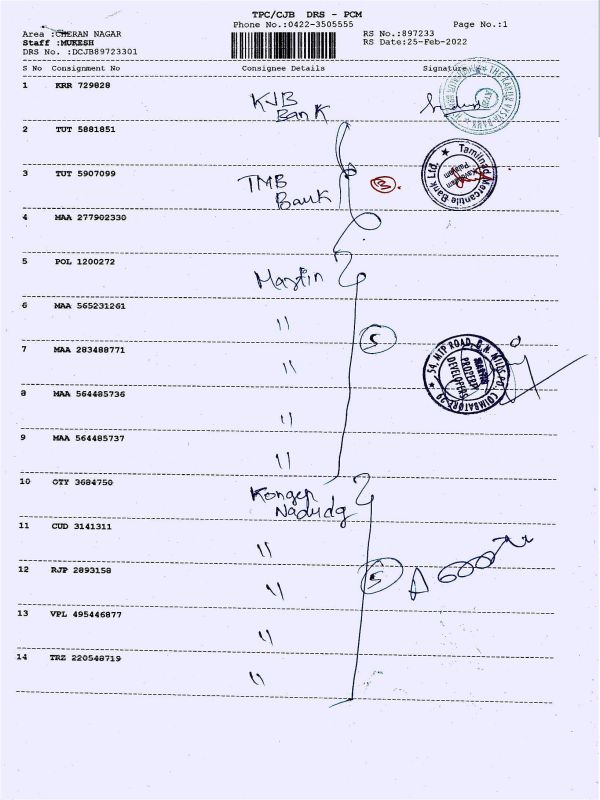 TPC/CJB DRS - PCM
Phone No.:0422-3505555 Page No.:1
Area :CHERAN NAGAR RS No.:897233
Staff :MUKESH RS Date:25-Feb-2022
DRS No. :DCJB89723301
S No Consignment No Consignee Details Signature
1 KRR 729828
KJB
Bank
2 TUT 5881851
3 TUT 5907099
TMB
Bank
3
Tamilnad Mercantile Bank Ltd.
4 MAA 277902330
5 POL 1200272
Martin
6 MAA 565231261 "
5
7 MAA 283488771 "
54, MTP ROAD, G.N. MILLS PO, COIMBATORE-29
MARTIN
PROPERTY
DEVELOPERS
8 MAA 564485736 "
9 MAA 564485737 "
10 OTY 3684750
11 CUD 3141311 "
12 RJP 2893158 "
5
13 VPL 495446877 "
14 TRZ 220548719 "